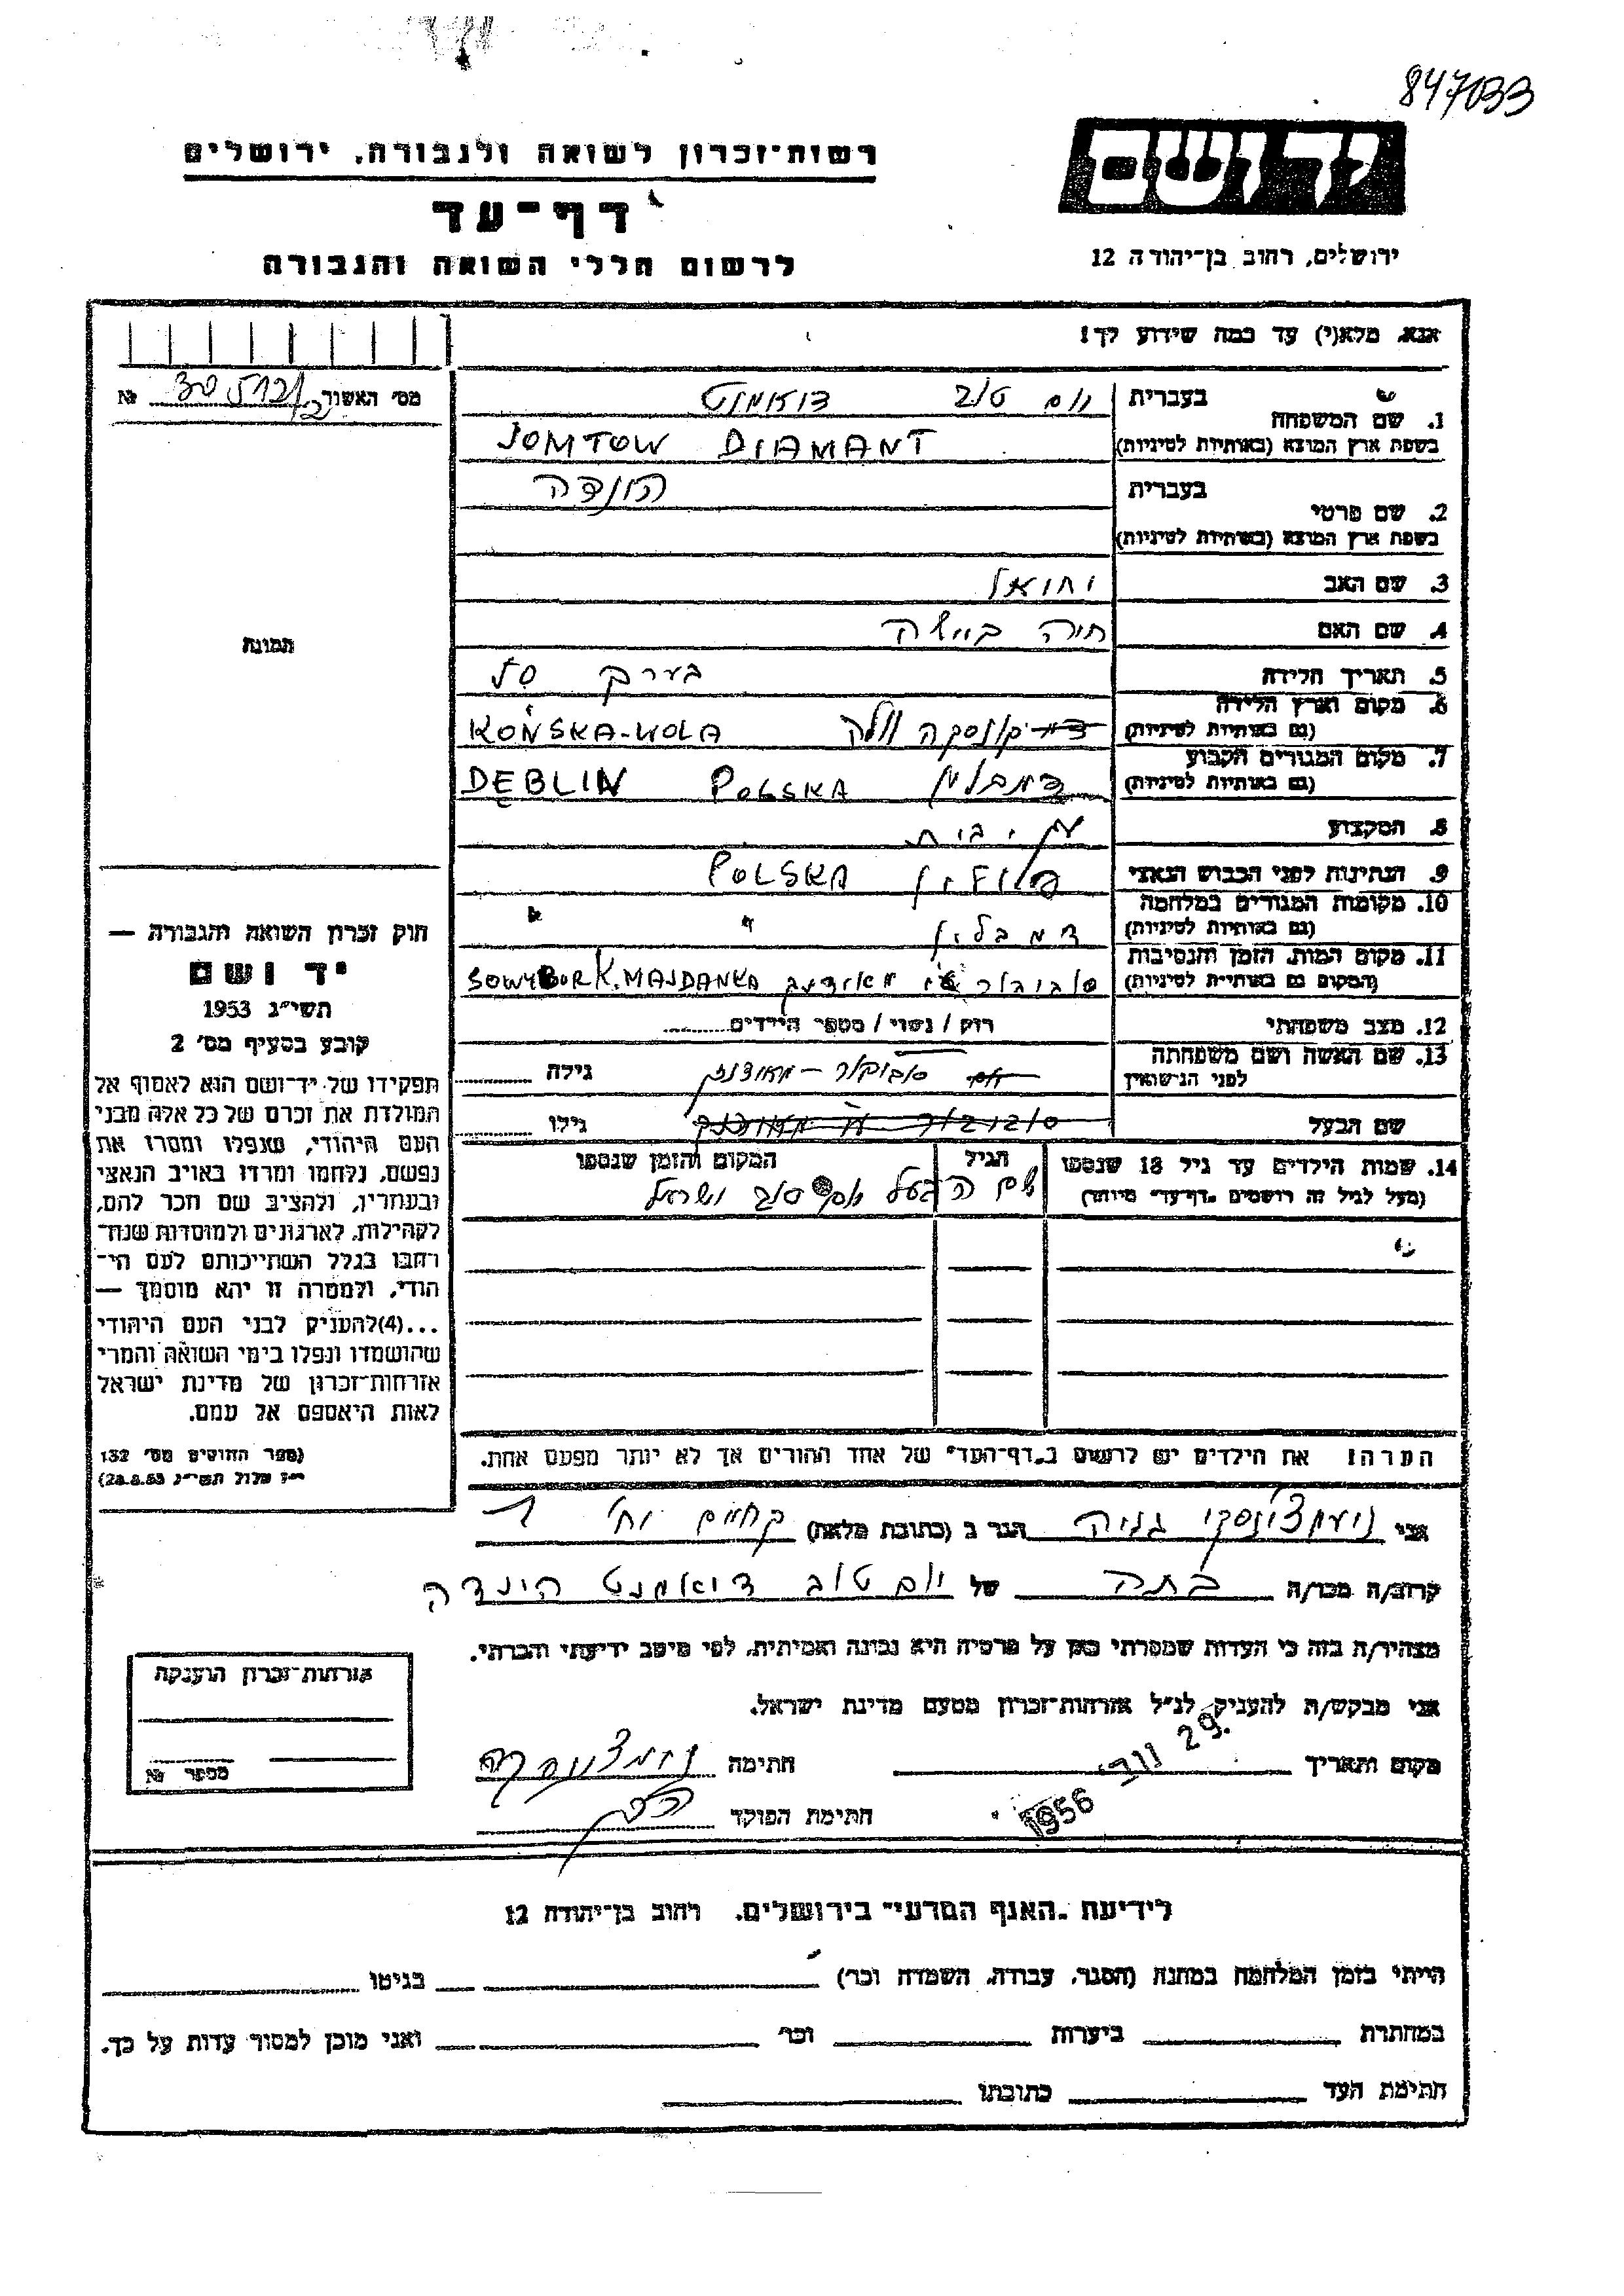 847033
יד ושם
רשות-זכרון לשואה ולגבורה, ירושלים
דף-עד
ירושלים, רחוב בן-יהודה 12
לרשום חללי השואה והגבורה
אנא, מלא(י) עד כמה שידוע לך!
מס' האשור № 30512/2
1. שם המשפחה
בעברית יום טוב דיאמנט
בשפת ארץ המוצא (באותיות לטיניות) JOMTOW DIAMANT
2. שם פרטי
בעברית הינדה
בשפת ארץ המוצא (באותיות לטיניות)
3. שם האב יחיאל
4. שם האם חיה ביילה
תמונה
5. תאריך הלידה בערך 50
6. מקום וארץ הלידה
(גם באותיות לטיניות) קונסקה וולה KOŃSKA-WOLA
7. מקום המגורים הקבוע
(גם באותיות לטיניות) דמבלין POLSKA DEBLIN
8. המקצוע עק. בית
9. הנתינות לפני הכבוש הנאצי פולין POLSKA
10. מקומות המגורים במלחמה
(גם באותיות לטיניות) דמבלין " "
11. מקום המות, הזמן והנסיבות
(המקום גם באותיות לטיניות) סוביבור או מאידנק SOWYBOR K. MAJDANKA
12. מצב משפחתי רווק / נשוי / מספר הילדים
13. שם האשה ושם משפחתה
לפני הנישואין סוביבור – גילה
שם הבעל סוביבור או מאידנק גילו
14. שמות הילדים עד גיל 18 שנספו
(מעל לגיל זה רושמים "דף-עד" מיוחד)
הגיל
המקום והזמן שנספו
שם הבעל יום טוב ישראל
הערה! את הילדים יש לרשום ב"דף-העד" של אחד ההורים אך לא יותר מפעם אחת.
חוק זכרון השואה והגבורה —
יד ושם
תשי"ג 1953
קובע בסעיף מס' 2
תפקידו של יד-ושם הוא לאסוף אל
המולדת את זכרם של כל אלה מבני
העם היהודי, שנפלו ומסרו את
נפשם, נלחמו ומרדו באויב הנאצי
ובעוזריו, ולהציב שם וזכר להם,
לקהילות, לארגונים ולמוסדות שנח-
רבו בגלל השתייכותם לעם הי-
הודי, ולמטרה זו יהא מוסמך —
...(4)להעניק לבני העם היהודי
שהושמדו ונפלו בימי השואה והמרי
אזרחות-זכרון של מדינת ישראל
לאות היאספם אל עמם.
(ספר החוקים מס' 132
י"ז אלול תשי"ג 28.8.53)
אני גניה הגר ב (כתובת מלאה)
קרוב/ה מכר/ה בתה של יום טוב דיאמנט הינדה
מצהיר/ה בזה כי העדות שמסרתי כאן על פרטיה היא נכונה ואמיתית, לפי מיטב ידיעתי והכרתי.
אני מבקש/ת להעניק לנ"ל אזרחות-זכרון מטעם מדינת ישראל.
מקום ותאריך 29. 1956 חתימה
חתימת הפוקד
אזרחות-זכרון הוענקה
מספר №
לידיעת "האגף המדעי" בירושלים, רחוב בן-יהודה 12
הייתי בזמן המלחמה במחנה (הסגר, עבודה, השמדה וכו') בגיטו
במחתרת ביערות וכו' ואני מוכן למסור עדות על כך.
חתימת העד כתובתו